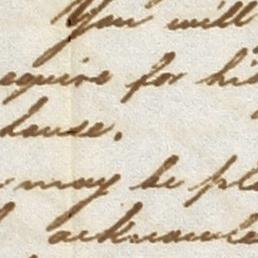 You will
equire for his
clause.
may be pl
acknowle